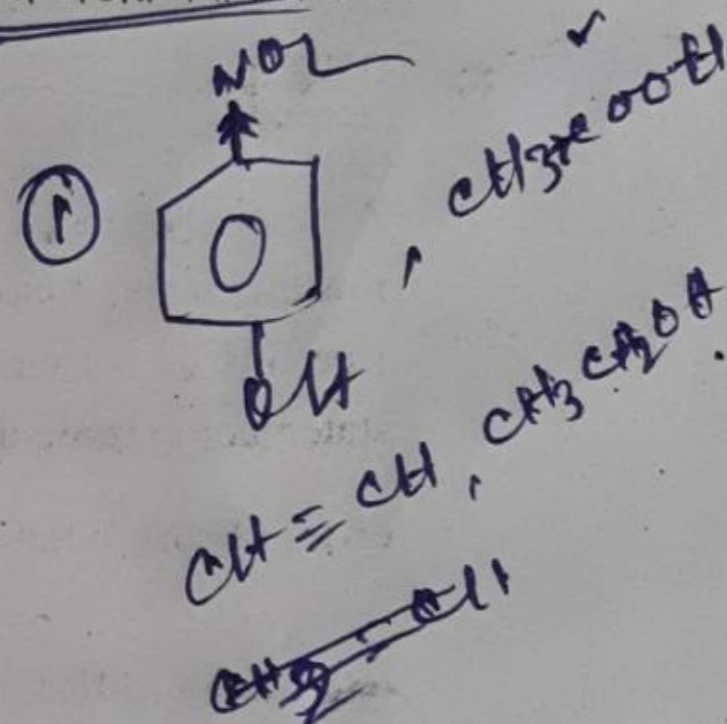 NO2
① , CH3COOH
OH
CH≡CH, CH3CH2OH